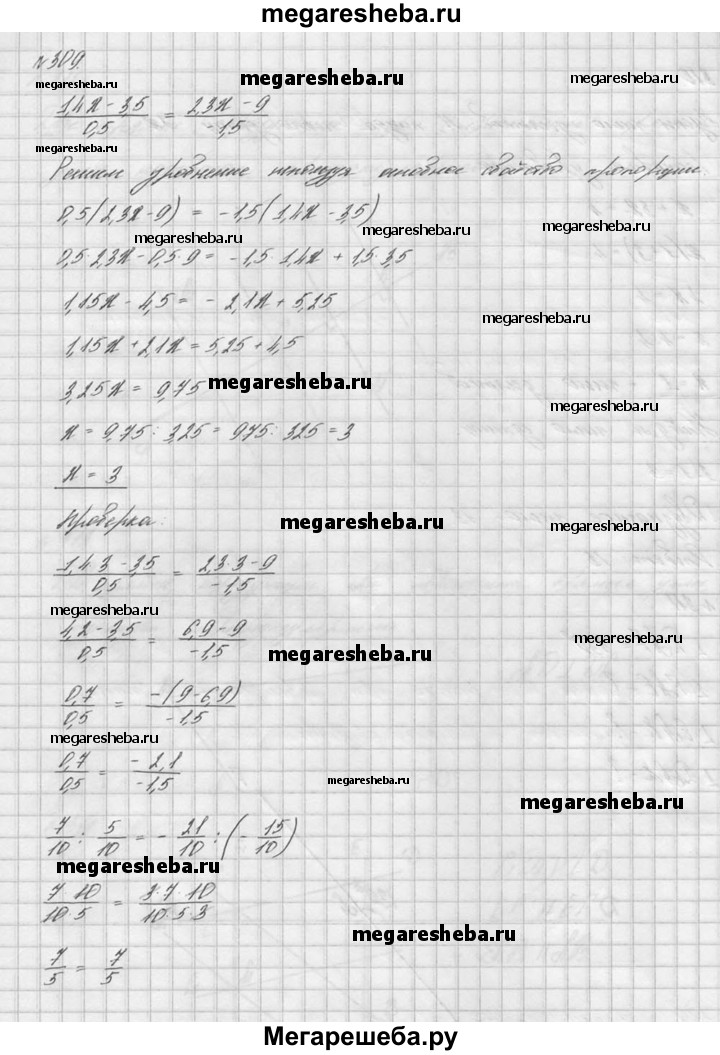 megaresheba.ru
№309.
megaresheba.ru megaresheba.ru megaresheba.ru
(1,4x - 3,5)/0,5 = (2,3x - 9)/-1,5
megaresheba.ru
Решим уравнение используя основное свойство пропорции.
0,5(2,3x - 9) = -1,5(1,4x - 3,5)
megaresheba.ru megaresheba.ru
0,5·2,3x - 0,5·9 = -1,5·1,4x + 1,5·3,5
1,15x - 4,5 = -2,1x + 5,25
megaresheba.ru
1,15x + 2,1x = 5,25 + 4,5
3,25x = 9,75
megaresheba.ru
megaresheba.ru
x = 9,75 : 3,25 = 975 : 325 = 3
x = 3
Проверка:
megaresheba.ru
(1,4·3 - 3,5)/0,5 = (2,3·3 - 9)/-1,5
megaresheba.ru
(4,2 - 3,5)/0,5 = (6,9 - 9)/-1,5
megaresheba.ru
megaresheba.ru
0,7/0,5 = -(9 - 6,9)/-1,5
megaresheba.ru
0,7/0,5 = -2,1/-1,5
megaresheba.ru
megaresheba.ru
7/10 : 5/10 = -21/10 : (-15/10)
megaresheba.ru
7·10/10·5 = 3·7·10/10·5·3
megaresheba.ru
7/5 = 7/5
Мегарешеба.ру